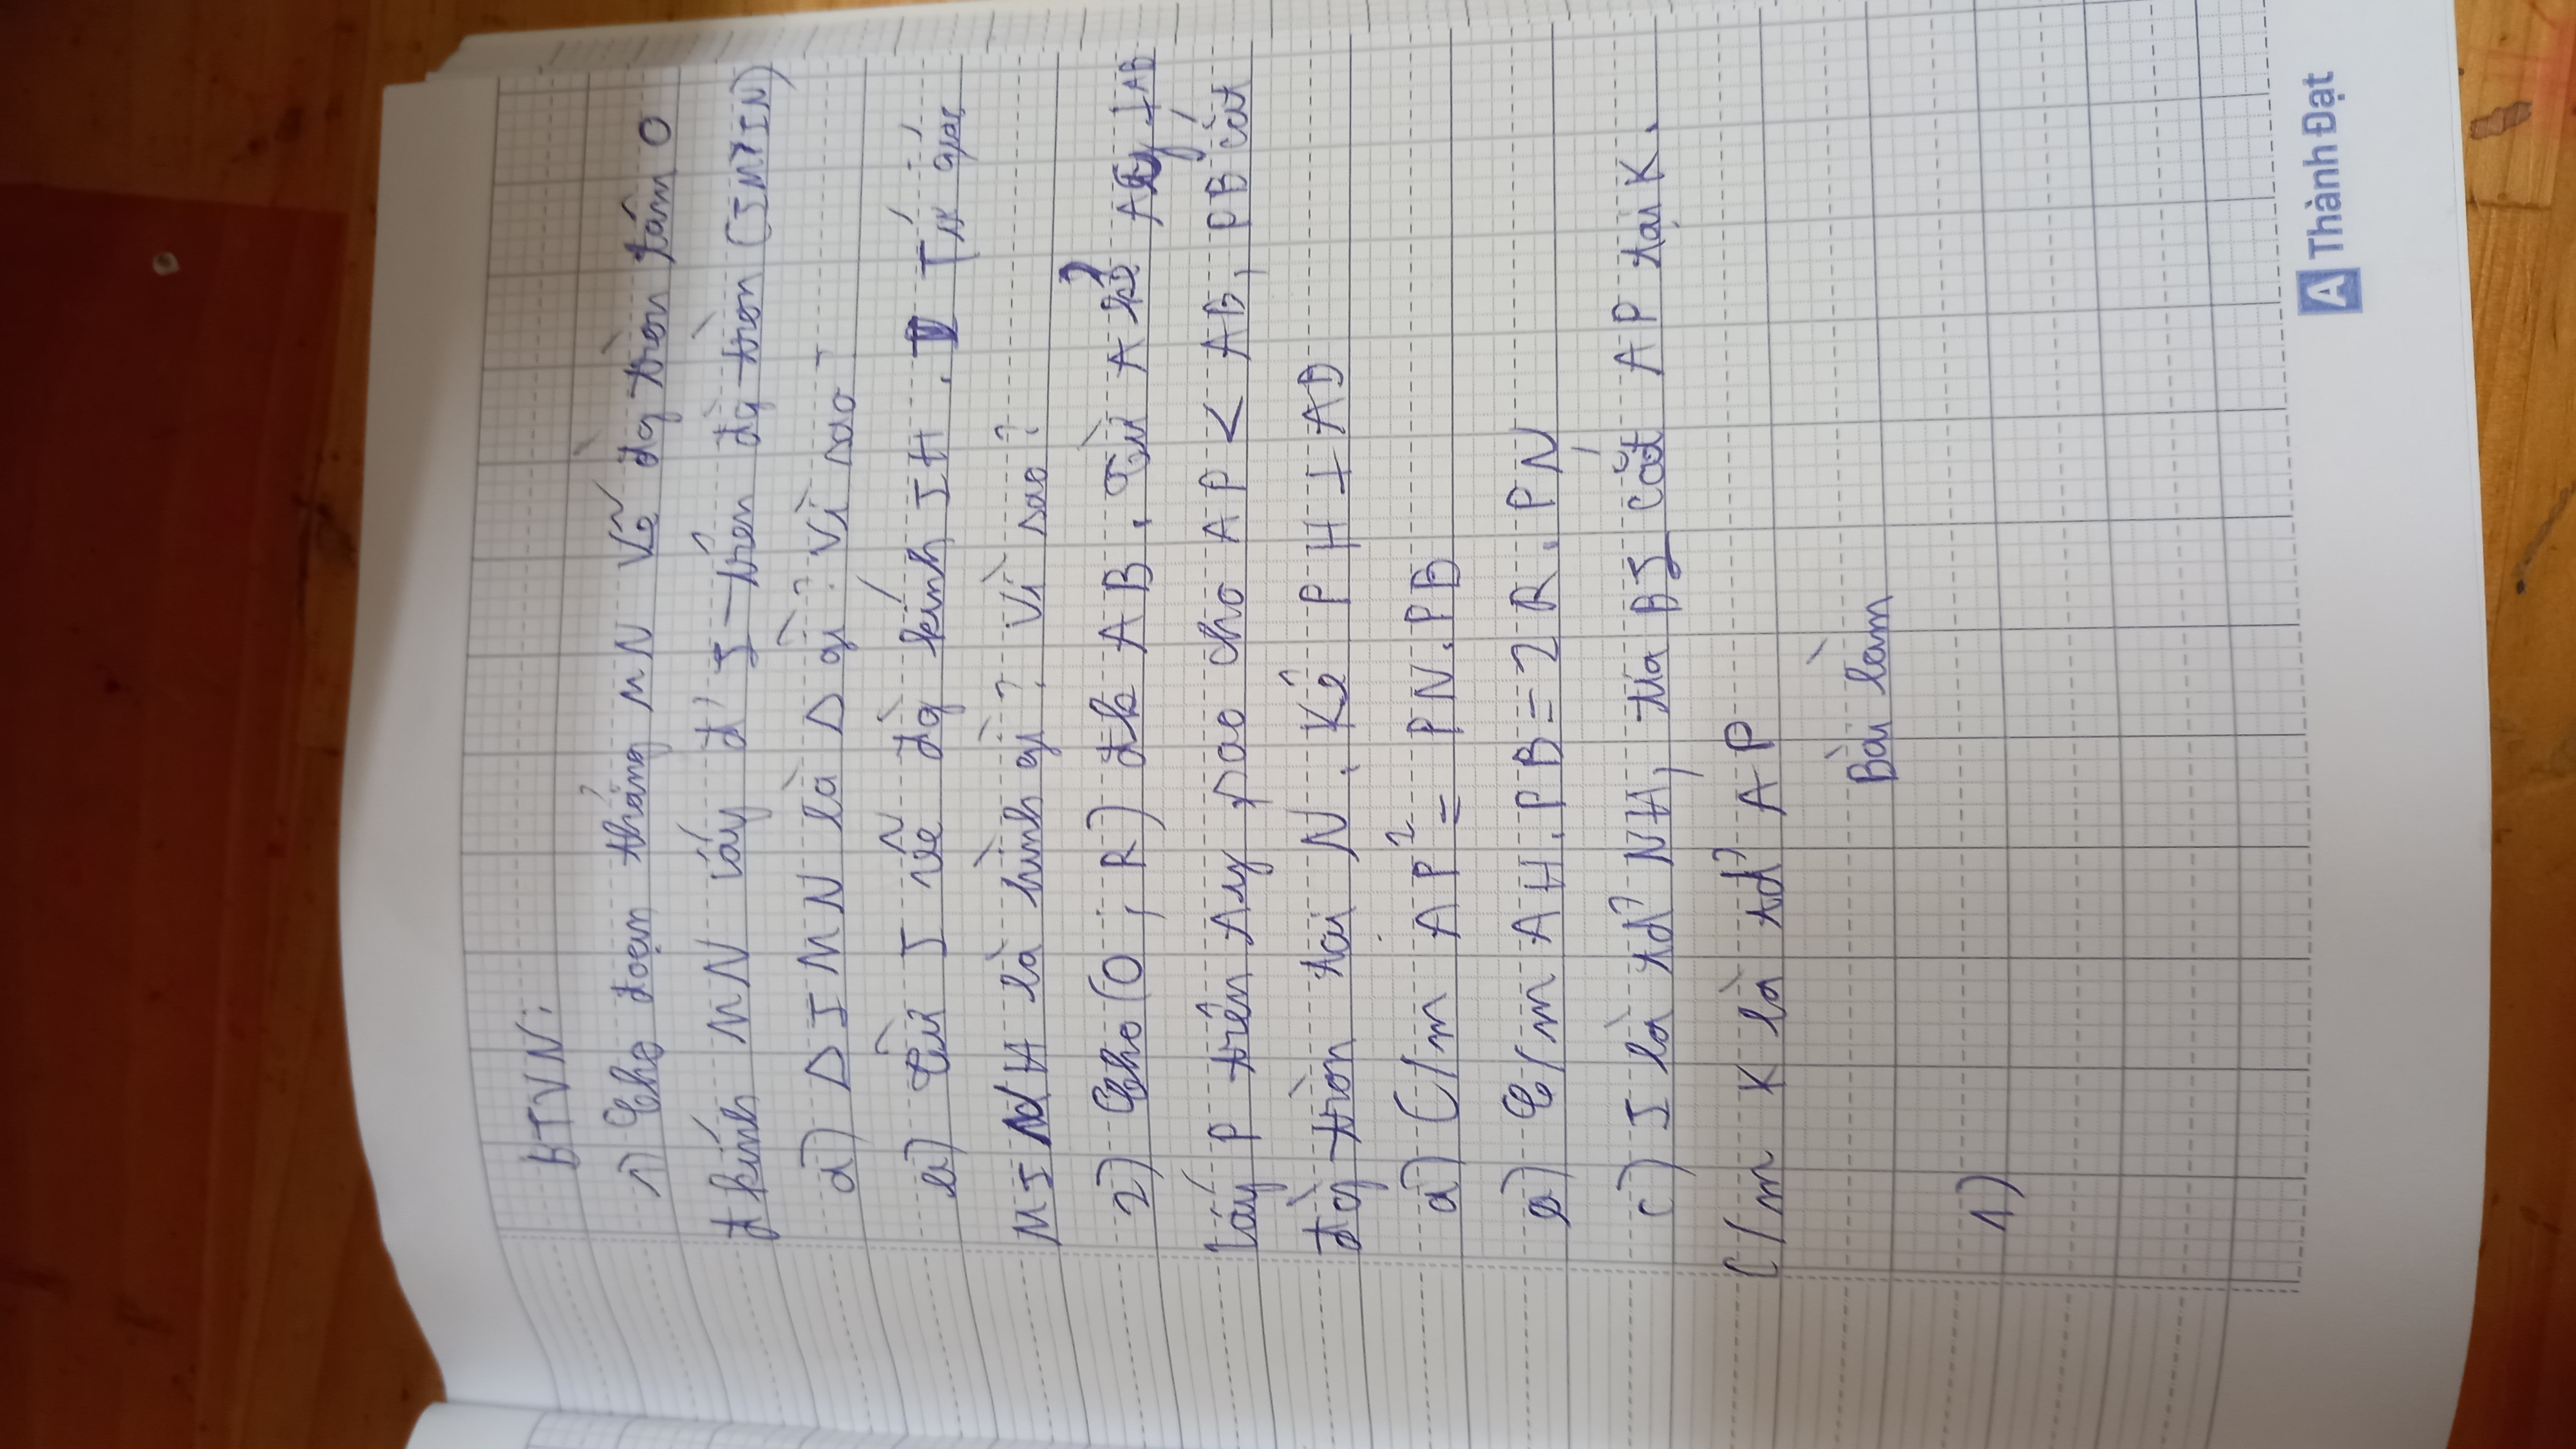 BTVN:
1) Cho đoạn thẳng MN Vẽ đg tròn tâm O
đ kính MN lấy đ' I trên đg tròn (IM7IN)
a) Δ IMN là Δ gì? Vì sao?
b) Từ I vẽ đg kính IH. Tứ giác
MINH là hình gì? Vì sao?
2) Cho (O, R) đk AB. Từ A kẻ Ay ⊥ AB
Lấy P trên Ay sao cho AP < AB, PB cắt
đg tròn tại N. Kẻ PH ⊥ AD
a) C/m AP² = PN.PB
b) C/m AH.PB = 2R.PN
c) I là tđ' NH, tia BI cắt AP tại K.
C/m K là tđ' AP
Bài làm
1)
A Thành Đạt